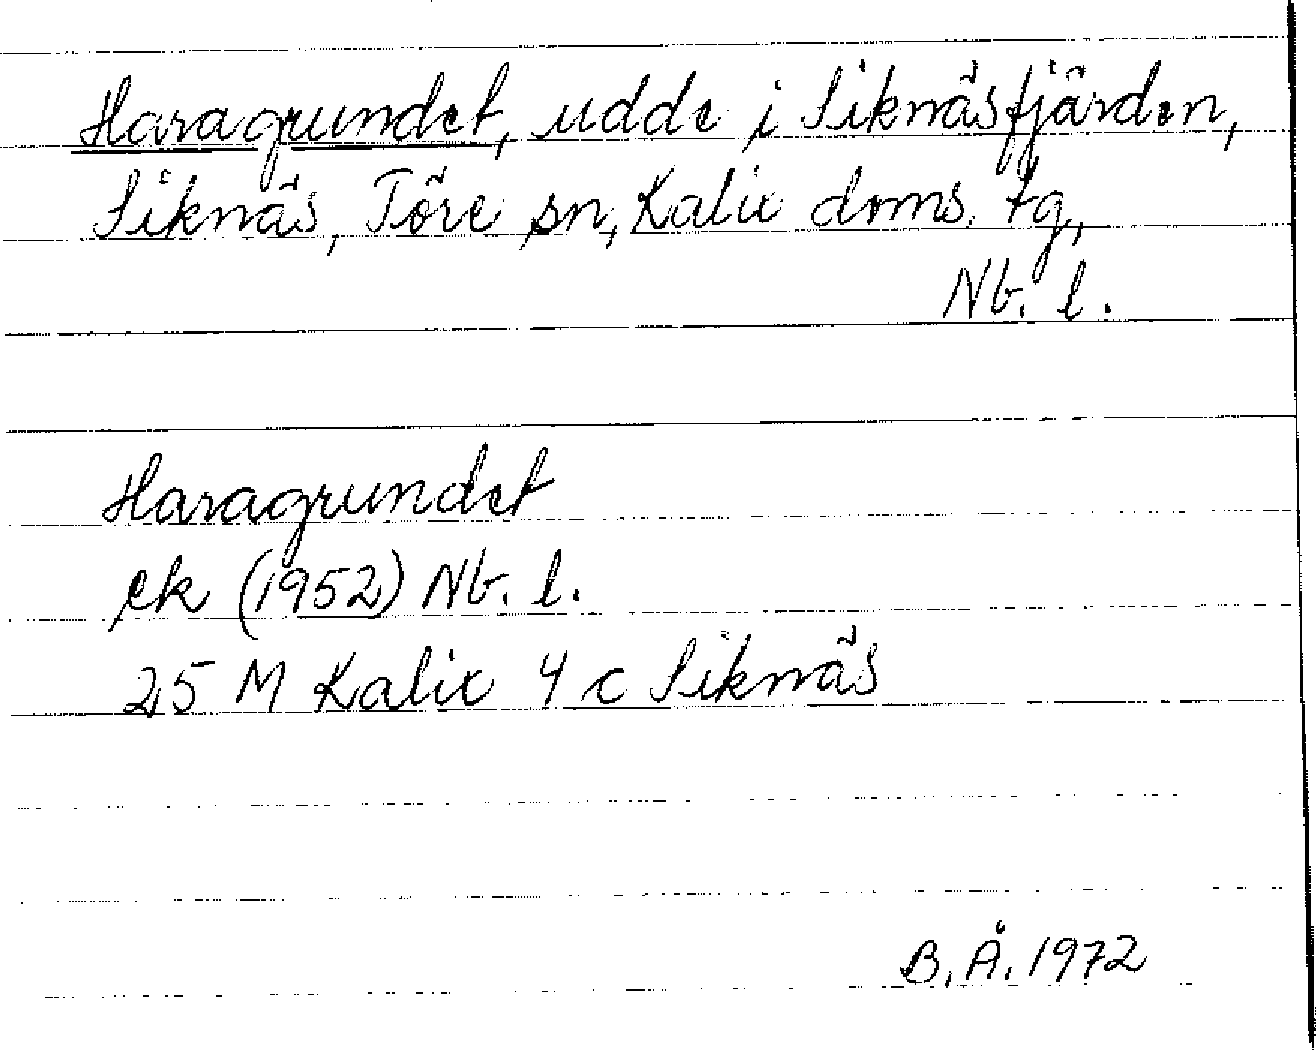 Haragrundet, udde i Siknäsfjärden,
Siknäs, Töre sn, Kalix doms. tg,
Nb. l.
Haragrundet
ek (1952) Nb. l.
25 M Kalix 4 c Siknäs
B.Å. 1972